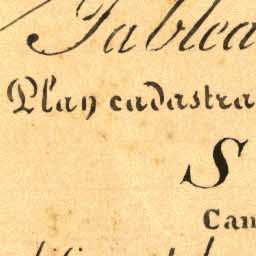 Tablea
Plan cadastra
S
Can